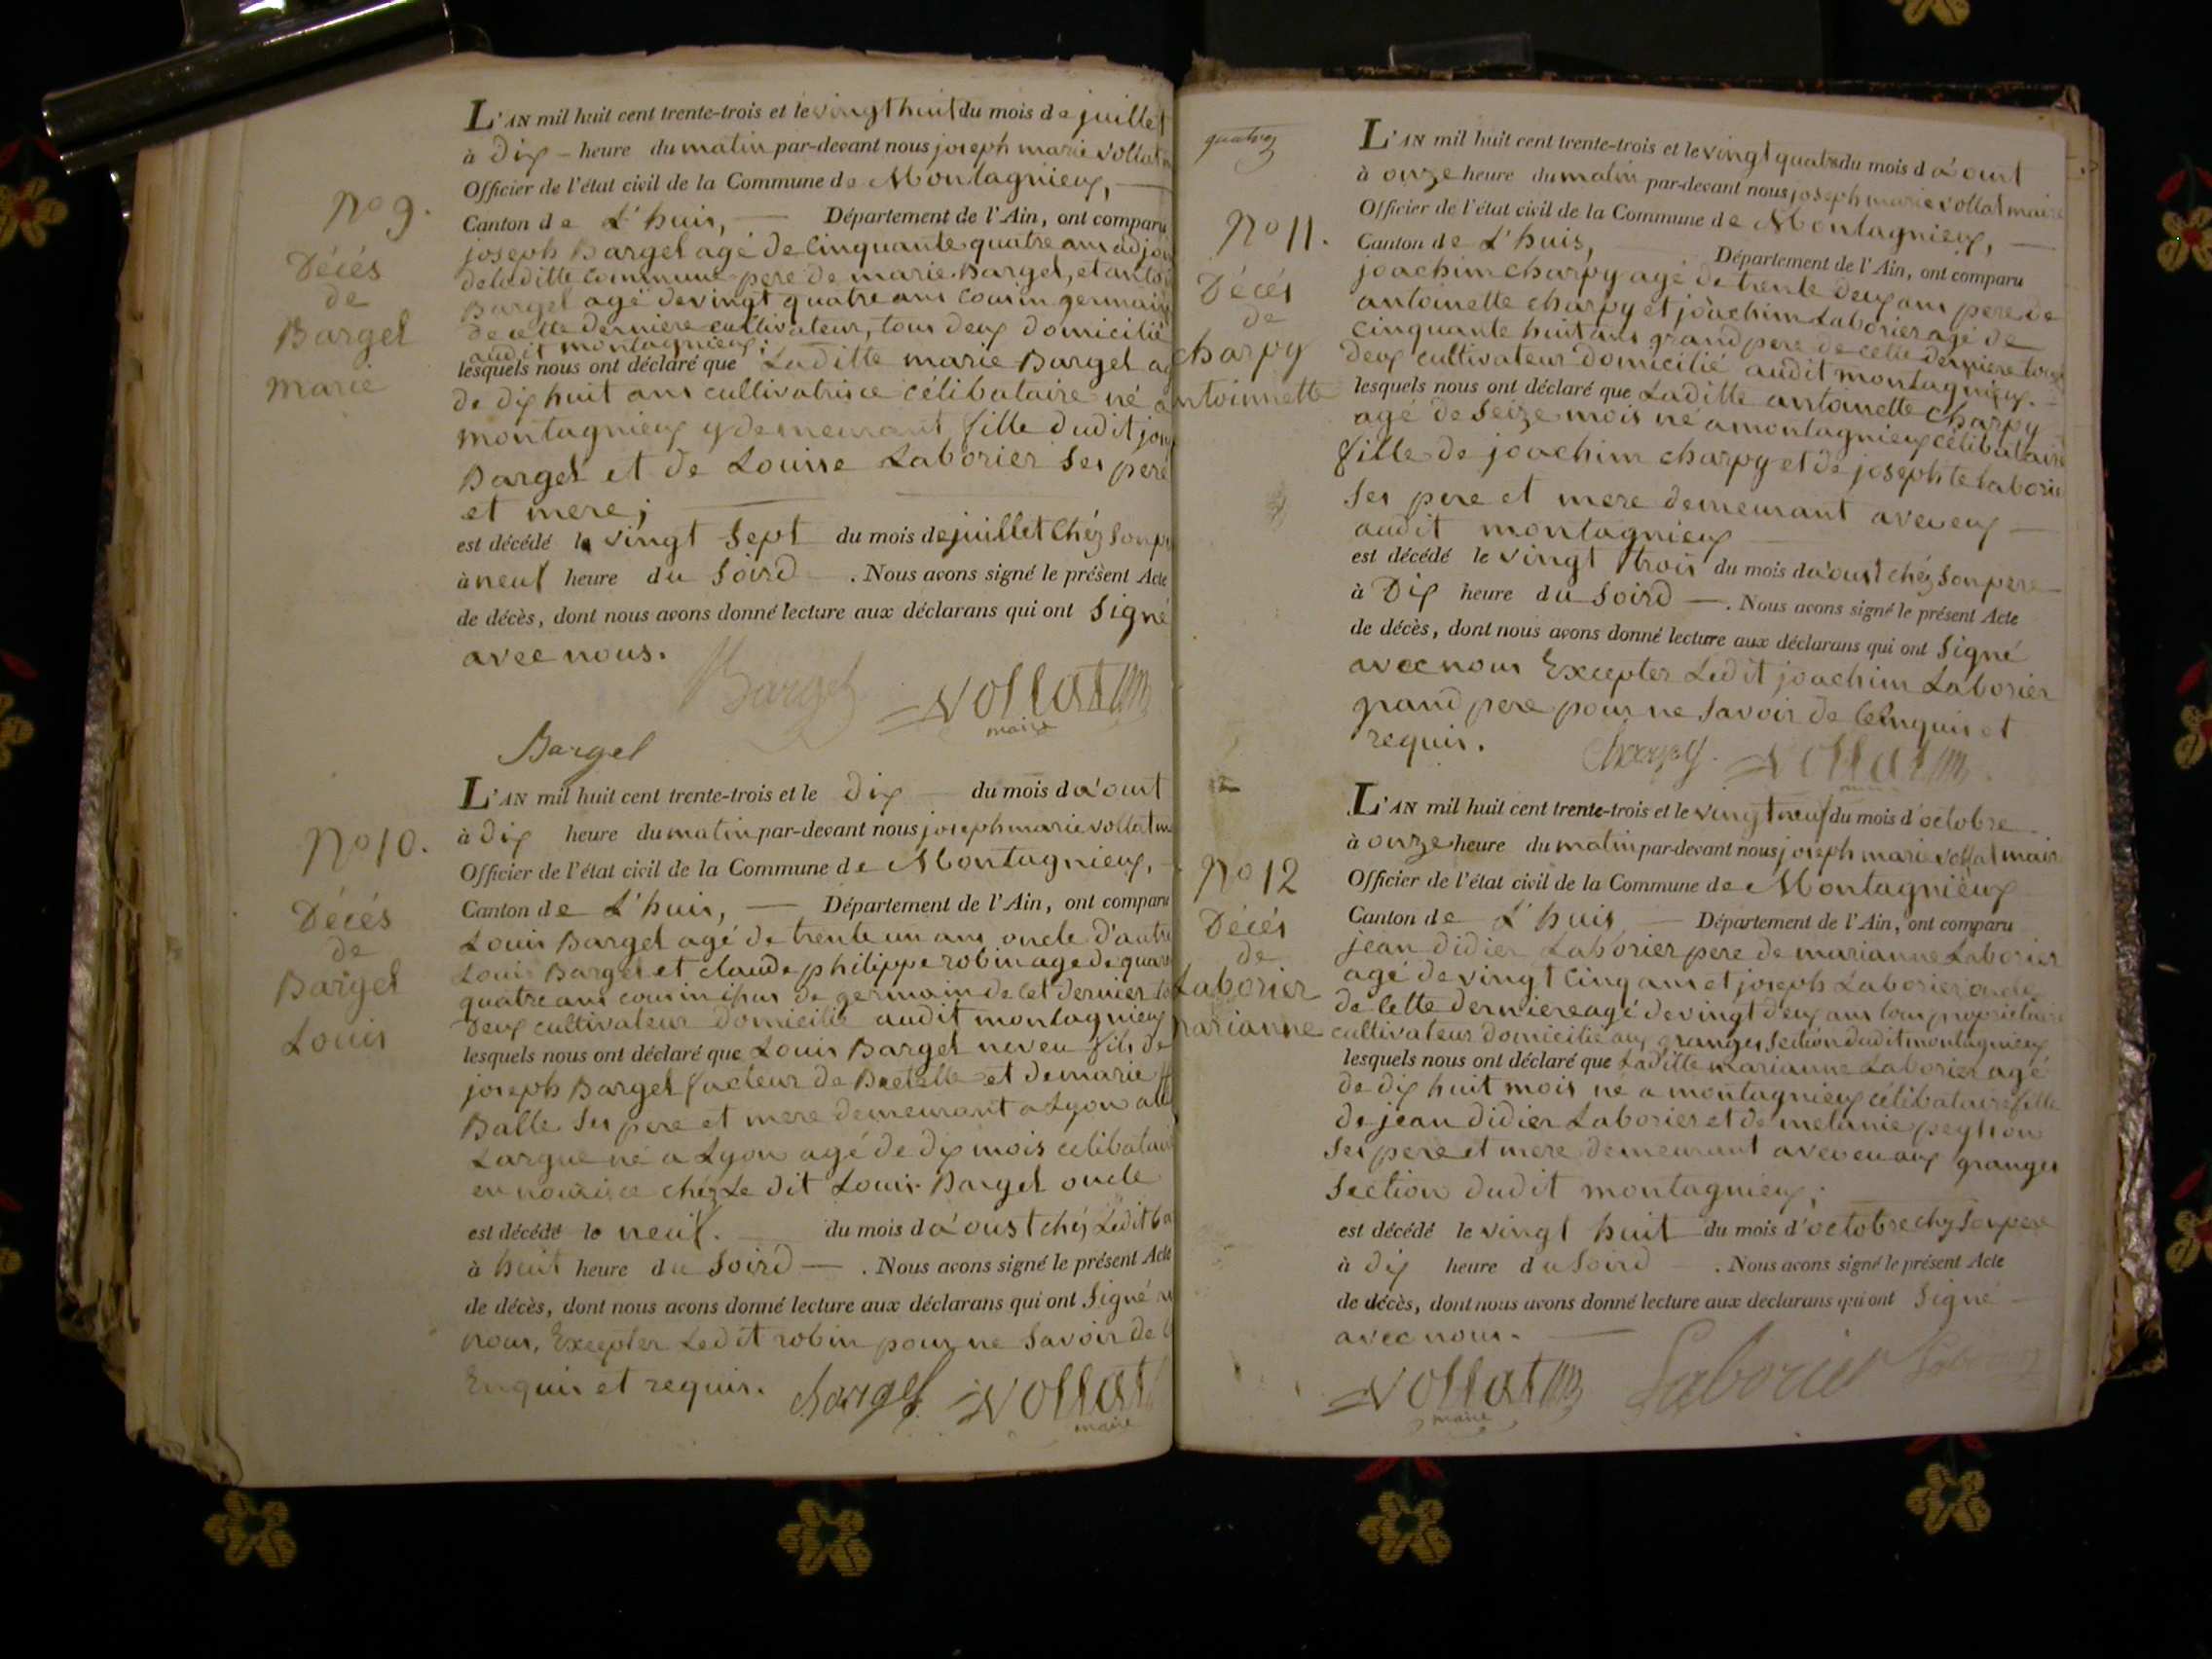 N° 9.
Décés
de
Bargel
marie
L'AN mil huit cent trente-trois et le vingt huit du mois de juillet
à dix — heure du matin par-devant nous joseph marie vollat
Officier de l'état civil de la Commune de Montagnieux, —
Canton de L'huis, — Département de l'Ain, ont comparu
joseph Bargel agé de Cinquante quatre ans adjoin
de laditte commune pere de marie Bargel, et
Bargel agé de vingt quatre ans Cousin germain
de cette derniere cultivateur, tous deux domicilié
audit montagnieux;
lesquels nous ont déclaré que Laditte marie Bargel
de dix huit ans cultivatrisce célibataire né a
montagnieux y demeurant fille dudit
Bargel et de Louise Laborier ses pere
et mere;
est décédé le vingt sept du mois de juillet chéz son
à neuf heure du soird — . Nous avons signé le présent Acte
de décès, dont nous avons donné lecture aux déclarans qui ont signé
avec nous.
Bargel vollat
maire
Bargel
N° 10.
Décés
de
Bargel
Louis
L'AN mil huit cent trente-trois et le dix — du mois d'a'out
à dix heure du matin par-devant nous joseph marie vollat
Officier de l'état civil de la Commune de Montagnieux,
Canton de L'huis, — Département de l'Ain, ont comparu
Louis Bargel agé de trente un ans, oncle d'autre
Louis Bargel et claude philippe robin agé de
quatre ans cousin de germain de cet dernier
deux cultivateur domicilié audit montagnieux
lesquels nous ont déclaré que Louis Bargel neveu fils de
joseph Bargel facteur de et de marie
Balle ses pere et mere demeurant a Lyon
né a Lyon agé de dix mois célibatair
en nourisce chéz Le dit Louis Bargel oncle
est décédé le neuf. — du mois d'a'oust chéz Ledit
à huit heure du soird — . Nous avons signé le présent Acte
de décès, dont nous avons donné lecture aux déclarans qui ont signé
nous, Excepter Ledit robin pour ne savoir de
Enquis et requis. Bargel vollat
maire
N° 11.
Décés
de
charpy
antoinnette
L'AN mil huit cent trente-trois et le vingt quatre du mois d'a'out
à onze heure du matin par-devant nous joseph marie vollat maire
Officier de l'état civil de la Commune de Montagnieux, —
Canton de L'huis, — Département de l'Ain, ont comparu
joachim charpy agé de trente deux ans pere de
antoinette charpy et joachim Laborier agé de
cinquante huit ans grand pere de cette derniere tous
deux cultivateur domicilié audit montagnieux. —
lesquels nous ont déclaré que Laditte antoinette charpy
agé de seize mois né a montagnieux célibataire
fille de joachim charpy et de josephte laborie
ses pere et mere demeurant avec eux —
audit montagnieux —
est décédé le vingt trois du mois d'a'oust chéz son pere —
à Dix heure du soird — . Nous avons signé le présent Acte
de décès, dont nous avons donné lecture aux déclarans qui ont signé
avec nous Excepter Ledit joachim Laborier
grand pere pour ne savoir de et
requis. charpy. vollat
N° 12
Décés
de
Laborier
marianne
L'AN mil huit cent trente-trois et le vingt neuf du mois d'octobre
à onze heure du matin par-devant nous joseph marie vollat mair
Officier de l'état civil de la Commune de Montagnieux
Canton de L'huis — Département de l'Ain, ont comparu
jean didier Laborier pere de marianne Laborier
agé de vingt cinq ans et joseph Laborier oncle
de cette derniere agé de vingt deux ans tous propriétaire
cultivateur domicilié aux granges section dudit montagnieux
lesquels nous ont déclaré que Laditte marianne Laborier agé
de dix huit mois né a montagnieux célibataire fille
de jean didier Laborier et de melanie peysson
ses pere et mere demeurant avec eu aux granges
section dudit montagnieux;
est décédé le vingt huit du mois d'octobre chez son pere
à dix heure du soird — . Nous avons signé le présent Acte
de décès, dont nous avons donné lecture aux déclarans qui ont signé —
avec nous. —
vollat Laborier
maire